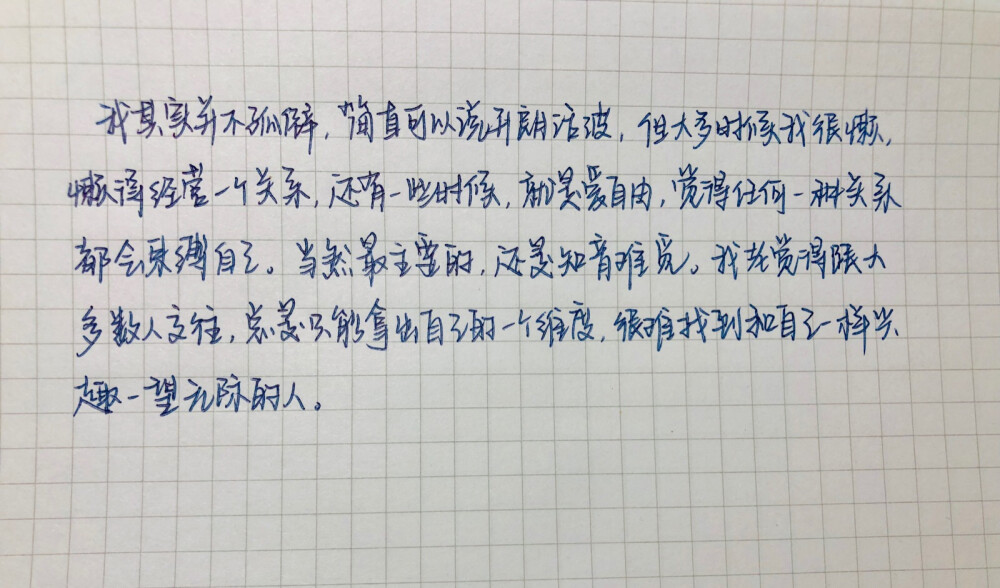 我其实并不孤僻，简直可以说开朗活波，但大多时候我很懒，
懒得经营一个关系，还有一些时候，就是爱自由，觉得任何一种关系
都会束缚自己。当然最主要的，还是知音难觅。我老觉得跟大
多数人交往，总是只能拿出自己的一个维度，很难找到和自己一样兴
趣一望无际的人。